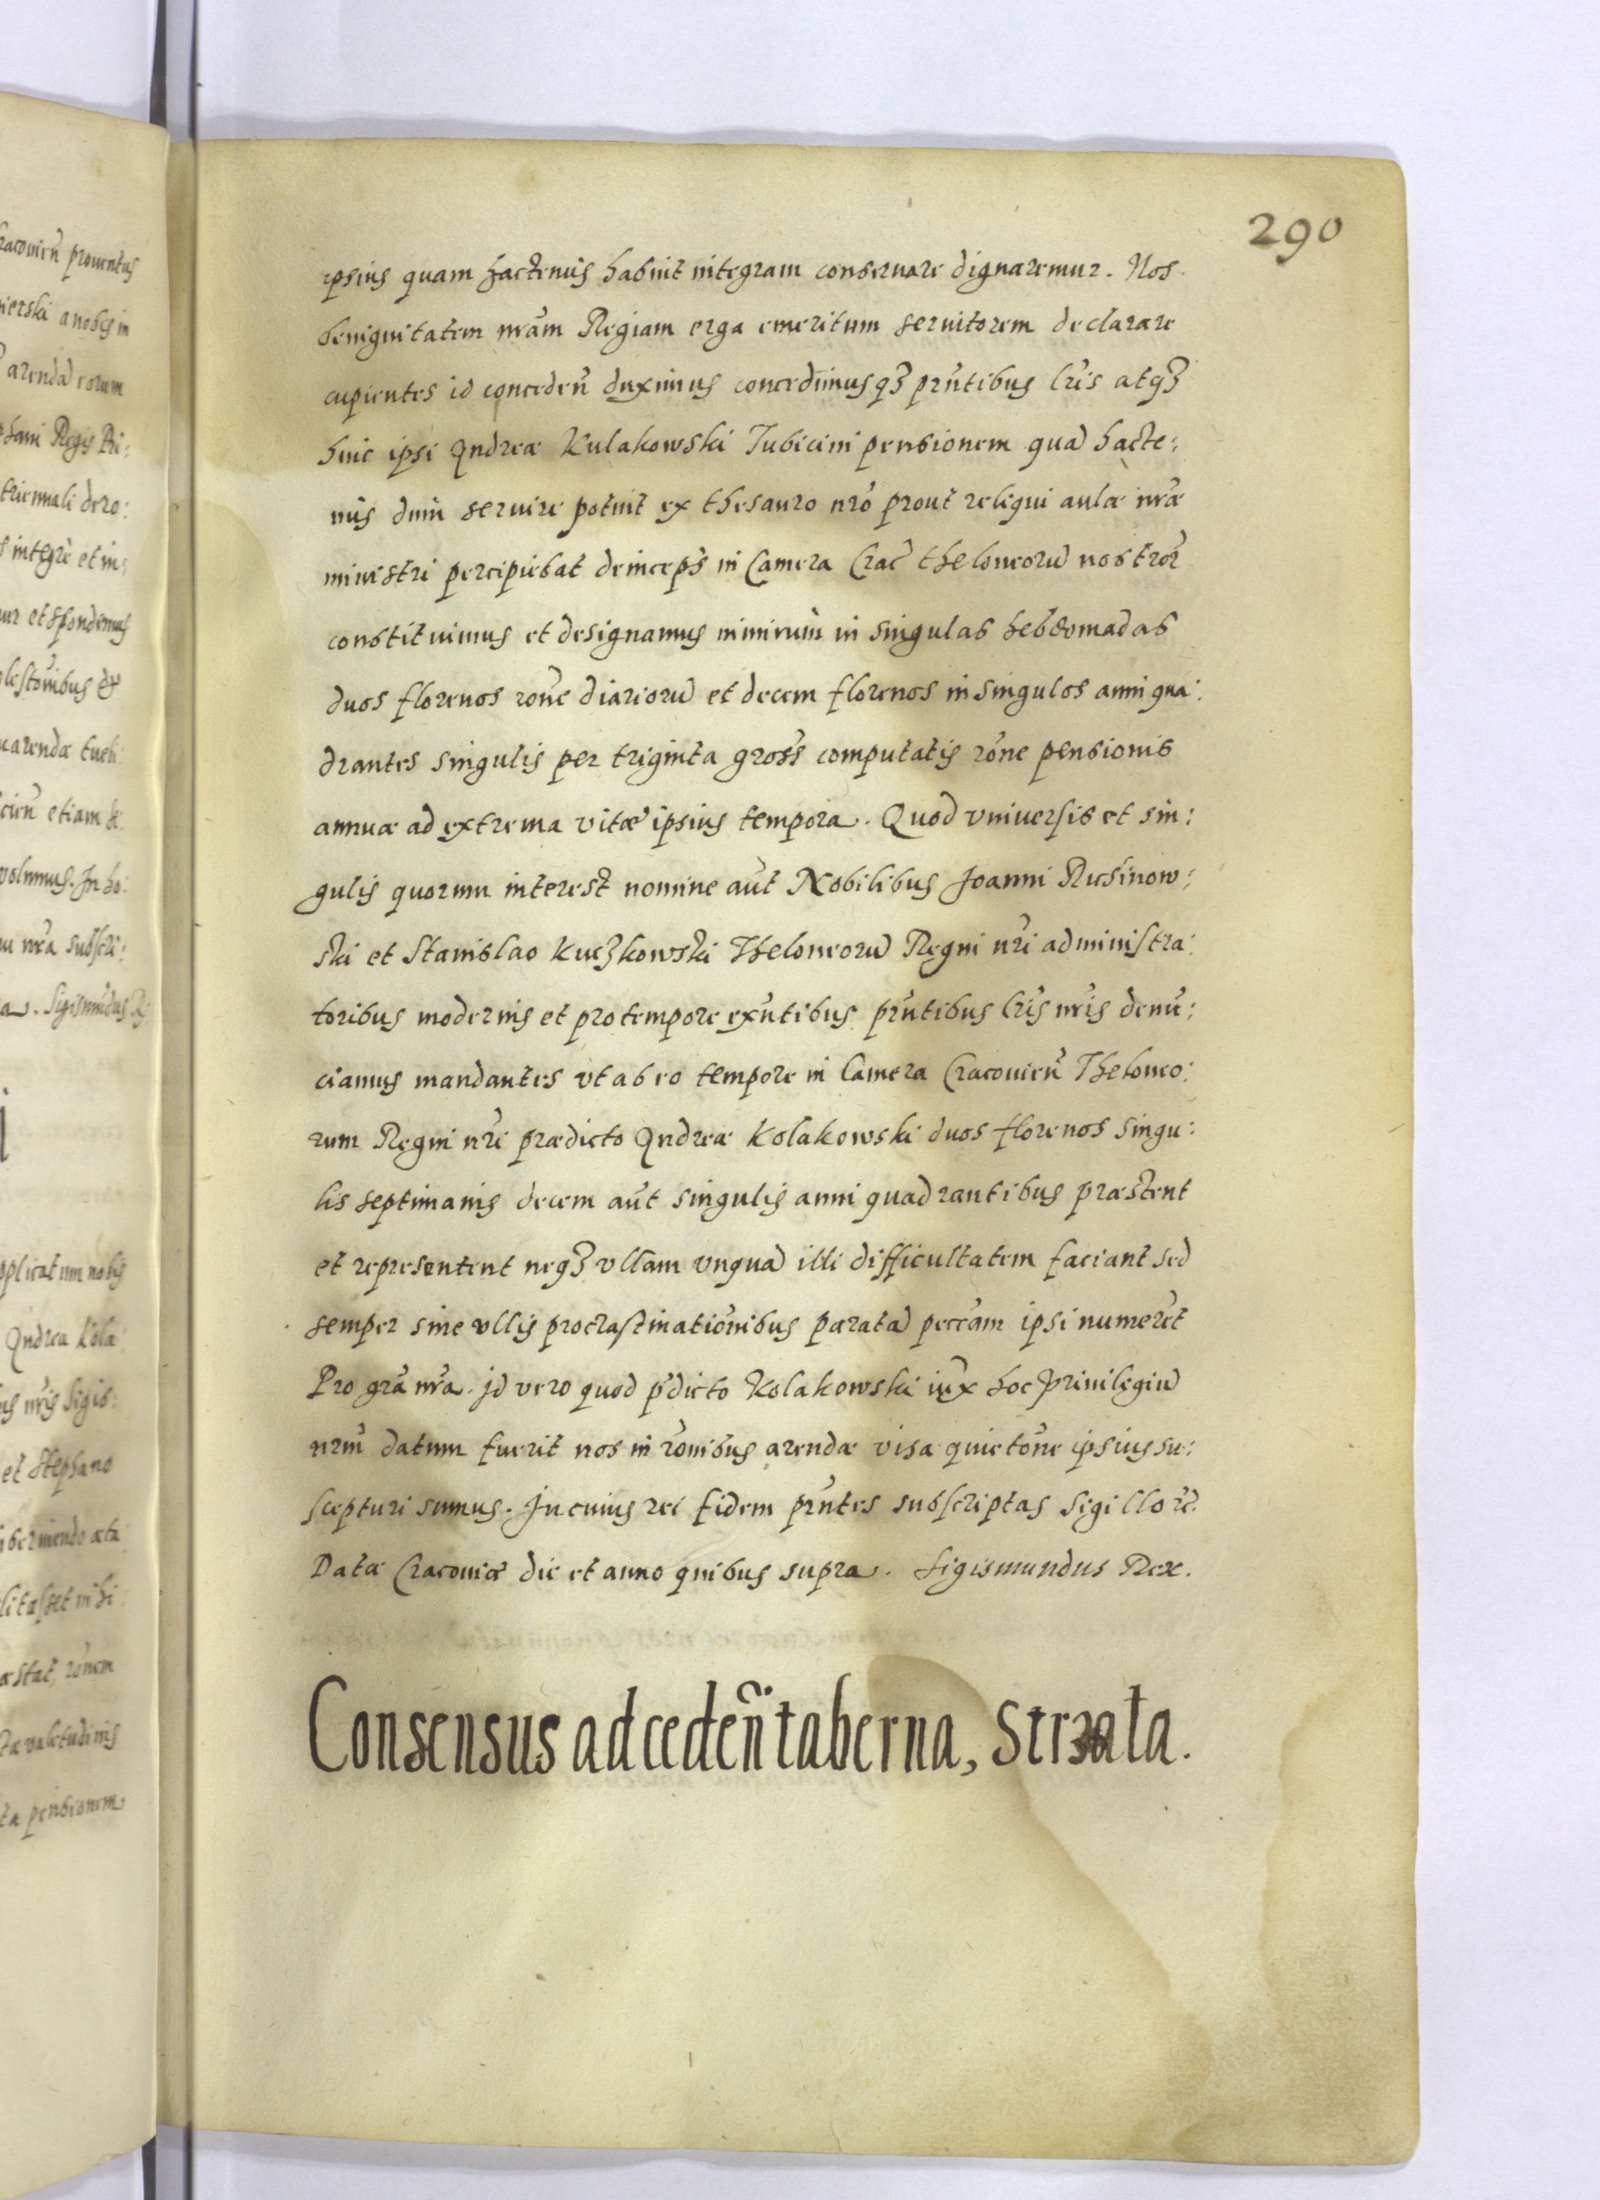 290
ipsius quam hactenus habuit integram conseruare dignaremur. Nos
benignitatem nr̃am Regiam erga emeritum seruitorem declarare
cupientes id conceden̄ duximus concedimusqȝ prn̄tibus lr̃is atqȝ
huic ipsi Andreæ Kulakowski Tubicini pensionem quā hacte:
nus dum seruire potuit ex thesauro nr̃o prout reliqui aulæ nr̃æ
ministri percipiebat deinceps in Camera Crac̄ theloneorū nostror̄
constituimus et designamus nimirum in singulas hebdomadas
duos florenos rōne diariorū et decem florenos in singulos anni qua:
drantes singulis per triginta gross̄ computatis rōne pensionis
annuæ ad extrema vitæ ipsius tempora. Quod vniuersis et sin:
gulis quorum interest nomine aūt Nobilibus Joanni Rusinow:
ski et Stanislao Kuczkowski Theloneorū Regni nr̃i administra:
toribus modernis et pro tempore exn̄tibus prn̄tibus lr̃is nr̃is denū:
ciamus mandantes vt ab eo tempore in Camera Cracouien̄ Theloneo:
rum Regni nr̃i prædicto Andreæ Kolakowski duos florenos singu:
lis septimanis decem aūt singulis anni quadrantibus præstent
et representent neqȝ vllam vnquā illi difficultatem faciant sed
semper sine vllis procrastinationibus paratā pecc̄am ipsi numerēt
Pro gr̄a nr̃a. Jd vero quod p̄dicto Kolakowski iux̄ hoc Priuilegiū
nr̄m datum fuerit nos in rōnibus arendæ visa quietōne ipsius su:
scepturi sumus. In cuius rei fidem prn̄tes subscriptas Sigillo rc̄.
Datæ Cracouiæ die et anno quibus supra. Sigismundus Rex.
Consensus ad ceden̄ taberna, Strzala.
racouien̄ prouentus
ierski a nobis in
arendā eorum
phani Regis Pri:
triennali dero:
integre et in:
ur et spondemus
lestōnibus &
arendæ tueb:
cien̄ etiam
volumus. In ho:
nr̃a subscri:
a. Sigismūdus
pplicatum nobis
Andrea Kola:
nr̃is Sigis:
et Stephano
ibermendo æta
litasset in hi
æstat, rōnem
æ valetudinis
ta pensionem